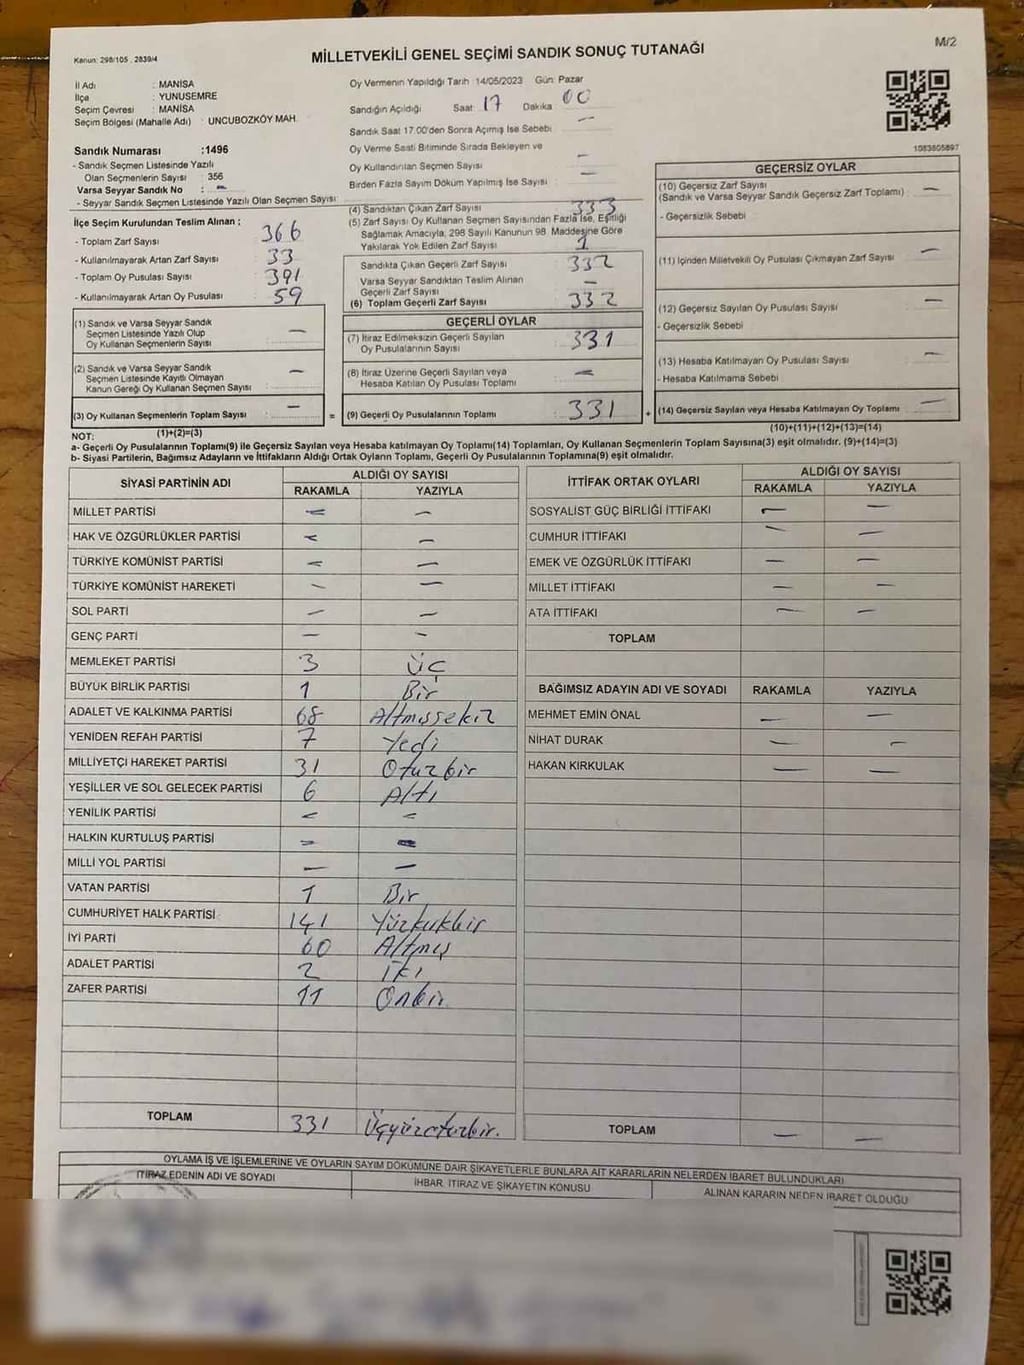 Kanun: 298/105 , 2839/4
MİLLETVEKİLİ GENEL SEÇİMİ SANDIK SONUÇ TUTANAĞI
M/2
İl Adı : MANİSA
İlçe : YUNUSEMRE
Seçim Çevresi : MANİSA
Seçim Bölgesi (Mahalle Adı) : UNCUBOZKÖY MAH.
Sandık Numarası :1496
- Sandık Seçmen Listesinde Yazılı
Olan Seçmenlerin Sayısı : 356
Varsa Seyyar Sandık No : –
- Seyyar Sandık Seçmen Listesinde Yazılı Olan Seçmen Sayısı
Oy Vermenin Yapıldığı Tarih 14/05/2023 Gün: Pazar
Sandığın Açıldığı Saat: 17 Dakika: 00
Sandık Saat 17.00'den Sonra Açılmış İse Sebebi –
Oy Verme Saati Bitiminde Sırada Bekleyen ve
Oy Kullandırılan Seçmen Sayısı –
Birden Fazla Sayım Döküm Yapılmış İse Sayısı –
1083805897
İlçe Seçim Kurulundan Teslim Alınan ;
- Toplam Zarf Sayısı 366
- Kullanılmayarak Artan Zarf Sayısı 33
- Toplam Oy Pusulası Sayısı 391
- Kullanılmayarak Artan Oy Pusulası 59
(1) Sandık ve Varsa Seyyar Sandık
Seçmen Listesinde Yazılı Olup
Oy Kullanan Seçmenlerin Sayısı –
(2) Sandık ve Varsa Seyyar Sandık
Seçmen Listesinde Kayıtlı Olmayan
Kanun Gereği Oy Kullanan Seçmen Sayısı –
(3) Oy Kullanan Seçmenlerin Toplam Sayısı –
(1)+(2)=(3)
(4) Sandıktan Çıkan Zarf Sayısı 333
(5) Zarf Sayısı Oy Kullanan Seçmen Sayısından Fazla İse, Eşitliği
Sağlamak Amacıyla, 298 Sayılı Kanunun 98. Maddesine Göre
Yakılarak Yok Edilen Zarf Sayısı 1
Sandıkta Çıkan Geçerli Zarf Sayısı 332
Varsa Seyyar Sandıktan Teslim Alınan
Geçerli Zarf Sayısı –
(6) Toplam Geçerli Zarf Sayısı 332
GEÇERLİ OYLAR
(7) İtiraz Edilmeksizin Geçerli Sayılan
Oy Pusulalarının Sayısı 331
(8) İtiraz Üzerine Geçerli Sayılan veya
Hesaba Katılan Oy Pusulası Toplamı –
= (9) Geçerli Oy Pusulalarının Toplamı 331 +
GEÇERSİZ OYLAR
(10) Geçersiz Zarf Sayısı
(Sandık ve Varsa Seyyar Sandık Geçersiz Zarf Toplamı) –
- Geçersizlik Sebebi
(11) İçinden Milletvekili Oy Pusulası Çıkmayan Zarf Sayısı –
(12) Geçersiz Sayılan Oy Pusulası Sayısı –
- Geçersizlik Sebebi
(13) Hesaba Katılmayan Oy Pusulası Sayısı –
- Hesaba Katılmama Sebebi
(14) Geçersiz Sayılan veya Hesaba Katılmayan Oy Toplamı –
(10)+(11)+(12)+(13)=(14)
NOT:
a- Geçerli Oy Pusulalarının Toplamı(9) ile Geçersiz Sayılan veya Hesaba katılmayan Oy Toplamı(14) Toplamları, Oy Kullanan Seçmenlerin Toplam Sayısına(3) eşit olmalıdır. (9)+(14)=(3)
b- Siyasi Partilerin, Bağımsız Adayların ve İttifakların Aldığı Ortak Oyların Toplamı, Geçerli Oy Pusulalarının Toplamına(9) eşit olmalıdır.
SİYASİ PARTİNİN ADI ALDIĞI OY SAYISI
RAKAMLA YAZIYLA
MİLLET PARTİSİ – –
HAK VE ÖZGÜRLÜKLER PARTİSİ – –
TÜRKİYE KOMÜNİST PARTİSİ – –
TÜRKİYE KOMÜNİST HAREKETİ – –
SOL PARTİ – –
GENÇ PARTİ – –
MEMLEKET PARTİSİ 3 Üç
BÜYÜK BİRLİK PARTİSİ 1 Bir
ADALET VE KALKINMA PARTİSİ 68 Altmışsekiz
YENİDEN REFAH PARTİSİ 7 Yedi
MİLLİYETÇİ HAREKET PARTİSİ 31 Otuzbir
YEŞİLLER VE SOL GELECEK PARTİSİ 6 Altı
YENİLİK PARTİSİ – –
HALKIN KURTULUŞ PARTİSİ – –
MİLLİ YOL PARTİSİ – –
VATAN PARTİSİ 1 Bir
CUMHURİYET HALK PARTİSİ 141 Yüzkırkbir
İYİ PARTİ 60 Altmış
ADALET PARTİSİ 2 İki
ZAFER PARTİSİ 11 Onbir
TOPLAM 331 Üçyüzotuzbir.
İTTİFAK ORTAK OYLARI ALDIĞI OY SAYISI
RAKAMLA YAZIYLA
SOSYALİST GÜÇ BİRLİĞİ İTTİFAKI – –
CUMHUR İTTİFAKI – –
EMEK VE ÖZGÜRLÜK İTTİFAKI – –
MİLLET İTTİFAKI – –
ATA İTTİFAKI – –
TOPLAM
BAĞIMSIZ ADAYIN ADI VE SOYADI RAKAMLA YAZIYLA
MEHMET EMİN ÖNAL – –
NİHAT DURAK – –
HAKAN KIRKULAK – –
TOPLAM – –
OYLAMA İŞ VE İŞLEMLERİNE VE OYLARIN SAYIM DÖKÜMÜNE DAİR ŞİKAYETLERLE BUNLARA AİT KARARLARIN NELERDEN İBARET BULUNDUKLARI
İTİRAZ EDENİN ADI VE SOYADI İHBAR, İTİRAZ VE ŞİKAYETİN KONUSU ALINAN KARARIN NEDEN İBARET OLDUĞU